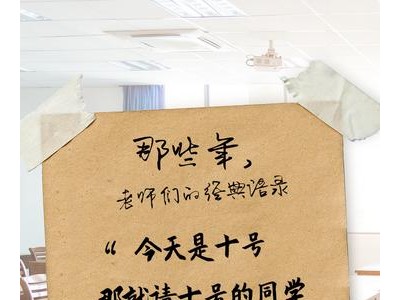 那些年，
老师们的经典语录
“今天是十号
那就请十号的同学